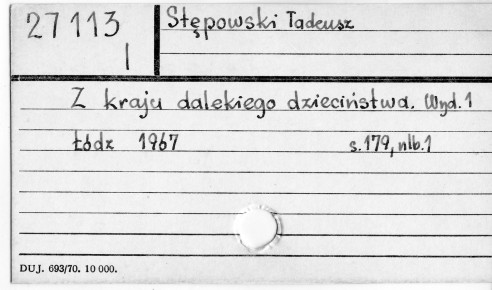 27113 Stępowski Tadeusz
I
Z kraju dalekiego dzieciństwa. Wyd. 1
Łódz 1967 s. 179, nlb. 1
DUJ. 693/70. 10 000.